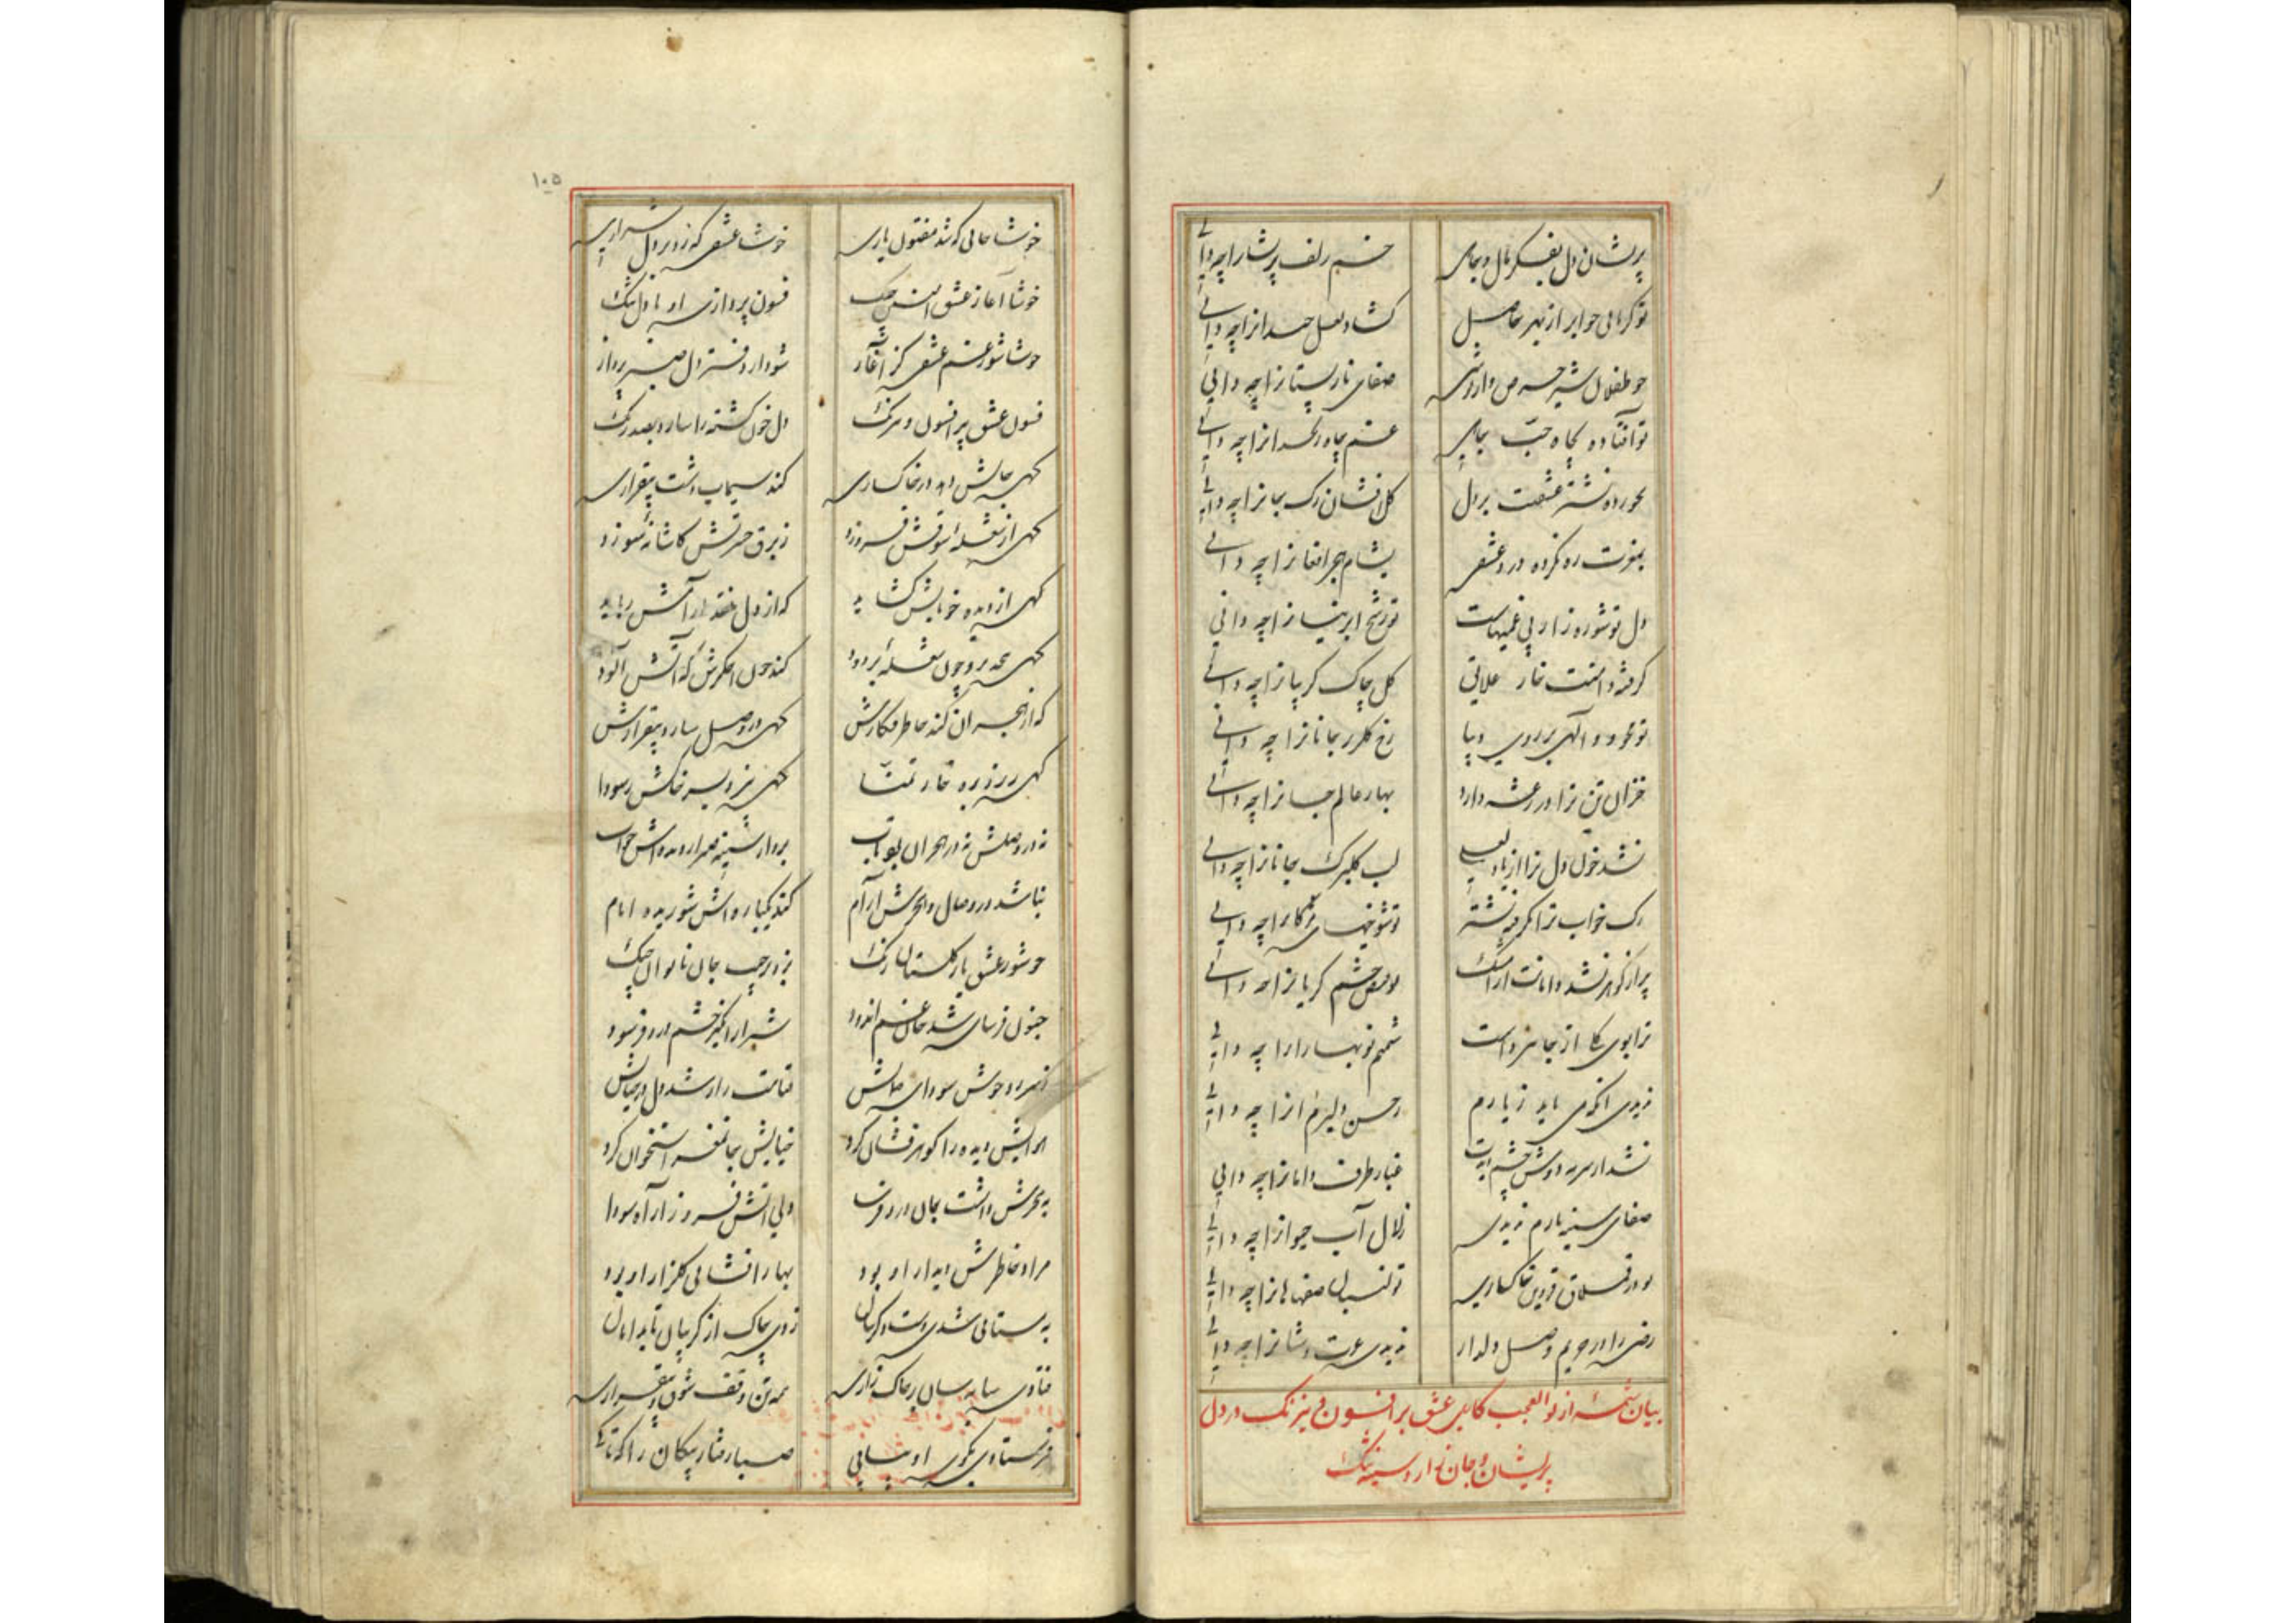 پریشان دل بفکر مال و جاهی خم زلف پریشانرا چه دانی
تو کز نالی جو ابر از بهر حاصل گشاد لعل خندانرا چه دانی
چو طفلان شیر حرص صفای نارپستانرا چه دانی
تو افتاده بچاه حب جاهی غم چاه زنخدانرا چه دانی
نخورده نشتر عشقت بر دل گل افشان رگ جانرا چه دانی
بمغزت ره نکرده درد عشقی بشام هجر افغانرا چه دانی
دل تو شوره زار بی غمیهاست ترشح ابر نیسانرا چه دانی
گرفته دامنت خار علایق گل چاک گریبانرا چه دانی
تو محو و والهی بر روی دیبا رخ گلرنگ جانانرا چه دانی
خزان تن ترا در رعشه دارد بهار عالم جانرا چه دانی
نشد خون دل ترا از یاد لعلی لب گلبرگ جانانرا چه دانی
رگ خواب ترا نگرفته نشتر تو شوخیهای مژگانرا چه دانی
پر از گوهر نشد دامانت از اشک تو فیض چشم گریانرا چه دانی
ترا بوی گل از جا نبرداست شمیم نوبهارانرا چه دانی
ندیدی آنکه می باید ز یارم ز حسن دلبرم آنرا چه دانی
نشد از سرمه روشن چشم دیدت غبار طرف دامانرا چه دانی
صفای سینه یارم ندیدی زلال آب حیوانرا چه دانی
تو در قسلاق قزوین خاکساری تو لنبان صفاهانرا چه دانی
رضی را در حریم وصل دلدار ندیدی عزت و شانرا چه دانی
بیان شمه از بوالعجب کاریهای عشق پر افسون و نیرنگ در دل
پریشان و جان زار و سینه تنگ
خوشا حالی که شد مفتون یاری خوشا عشقی که زد در دل شراری
خوشا آغاز عشق فسون پردازی او با دل تنگ
خوشا شور غم عشقی کز آغاز شود از رفتن دل صبر پرداز
فسون عشق پر افسون و نیرنگ دل خون گشته را سازد بصد رنگ
گهی جایش دهد در خاکساری کند سیماب دشت بیقراری
گهی از شعله شوقش فروزد ز برق حسرتش کاشانه سوزد
گهی از دیده خونابش گشاید که از دل آتش رباید
گهی چون شعله پر دود کند چون اخگرش گه آتش آلود
گه از هجران کند خاطر فگارش گهی در وصل سازد بیقرارش
گهی ریزد بره خار تمنا گهی بر سر خاکش ز سودا
نه در وصلش نه در هجران بود تاب برد از سینه صبر از دیده اش خواب
نباشد در وصال و هجرش آرام کند یکباره اش شوریده ایام
چو شور عشق یار گلستان رنگ بزد در جیب جان ناتوان چنگ
جنون فرسای شد جان غم اندود شرار انگیز چشم درد فرسود
ز سر زد جوش سودای جمالش قیامت زار شد دل در خیالش
هوایش دیده را گوهر فشان کرد خیالش جا بمغز استخوان کرد
بهجرش داشت جان درد فرسا دلی آتش فروز از آه سودا
مراد خاطرش دیدار او بود بهار افشانی گلزار او بود
به بیتابی شدی دست و گریبان زدی چاک از گریبان تا بدامان
فتادی سایه سان بر خاک زاری همه تن وقف شوق و بیقراری
فرستادی بکوی او پیامی صبا رفتار پیکان را
۱۰۵